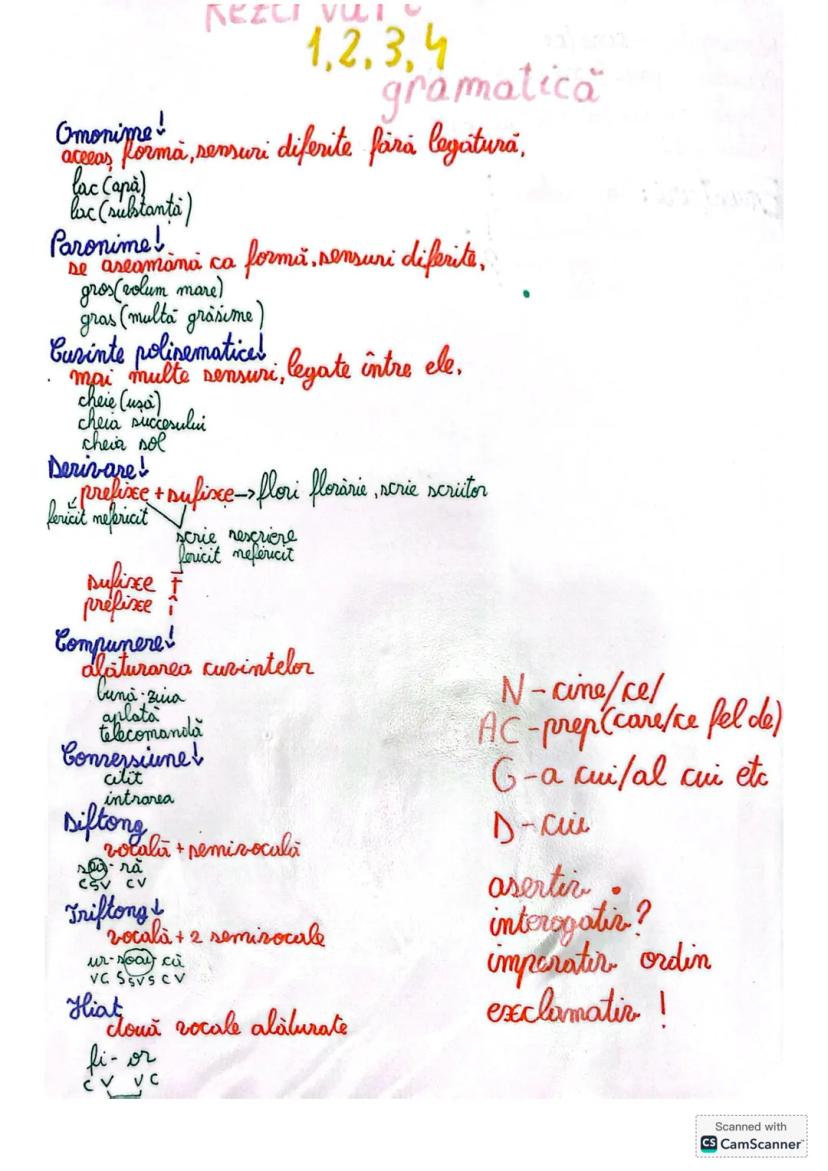 Rezervări
1,2,3,4
gramatică
Omonime↓
aceeaș formă, sensuri diferite fără legătură.
lac (apă)
lac (substanță)
Paronime↓
se aseamănă ca formă, sensuri diferite.
gros (volum mare)
gras (multă grăsime)
Cuvinte polisematice↓
mai multe sensuri, legate între ele.
cheie (ușă)
cheia succesului
cheia sol
Derivare↓
prefixe + sufixe → flori florărie, scrie scriitor
fericit nefericit
scrie rescriere
fericit nefericit
sufixe
prefixe
Compunere↓
alăturarea cuvintelor
bună-ziua
aplată
telecomandă
Conversiune↓
citit
intrarea
Diftong
vocală + semivocală
sea-ră
CSV CV
Triftong↓
vocală + 2 semivocale
ur-soai-că
VC SSVS CV
Hiat
două vocale alăturate
fi-or
CV VC
N - cine/ce/
AC - prep (care/ce fel de)
G - a cui/al cui etc
D - cui
asertiv .
interogativ ?
imperativ ordin
exclamativ !
Scanned with
CS CamScanner